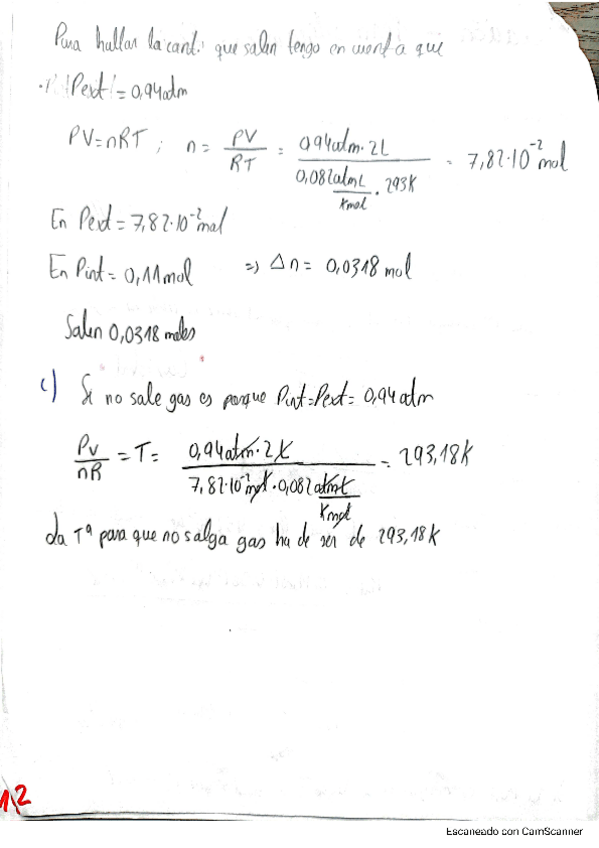 Para hallar la cant. que salen tengo en cuenta que
Pext = 0,94atm
PV=nRT ; n = PV/RT = 0,94atm·2L / 0,082atmL/Kmol · 293K = 7,82·10⁻² mol
En Pext = 7,82·10⁻² mol
En Pint = 0,11 mol => Δn = 0,0318 mol
Salen 0,0318 moles
c) Si no sale gas es porque Pint=Pext= 0,94 atm
PV/nR = T = 0,94atm·2L / 7,82·10⁻² mol·0,082 atmL/Kmol = 293,18K
La Tª para que no salga gas ha de ser de 293,18K
1,2
Escaneado con CamScanner